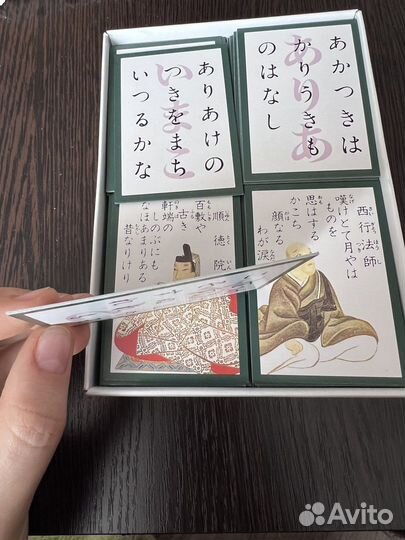 ありあけの
つきをまち
いつるかな
いまこ
あかつきは
かりうきも
のはなし
ありあ
順徳院
百敷や
古き
軒端の
しのぶにも
なほあまりある
昔なりけり
西行法師
嘆けとて月やは
ものを
思はする
かこち
顔なる
わが涙
Avito